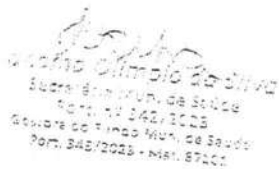 Olimpio da Silva
Secretário Mun. de Saúde
Port. Nº 342/2023
Gestora do Fundo Mun. de Saúde
Port. 345/2023 - Mat.